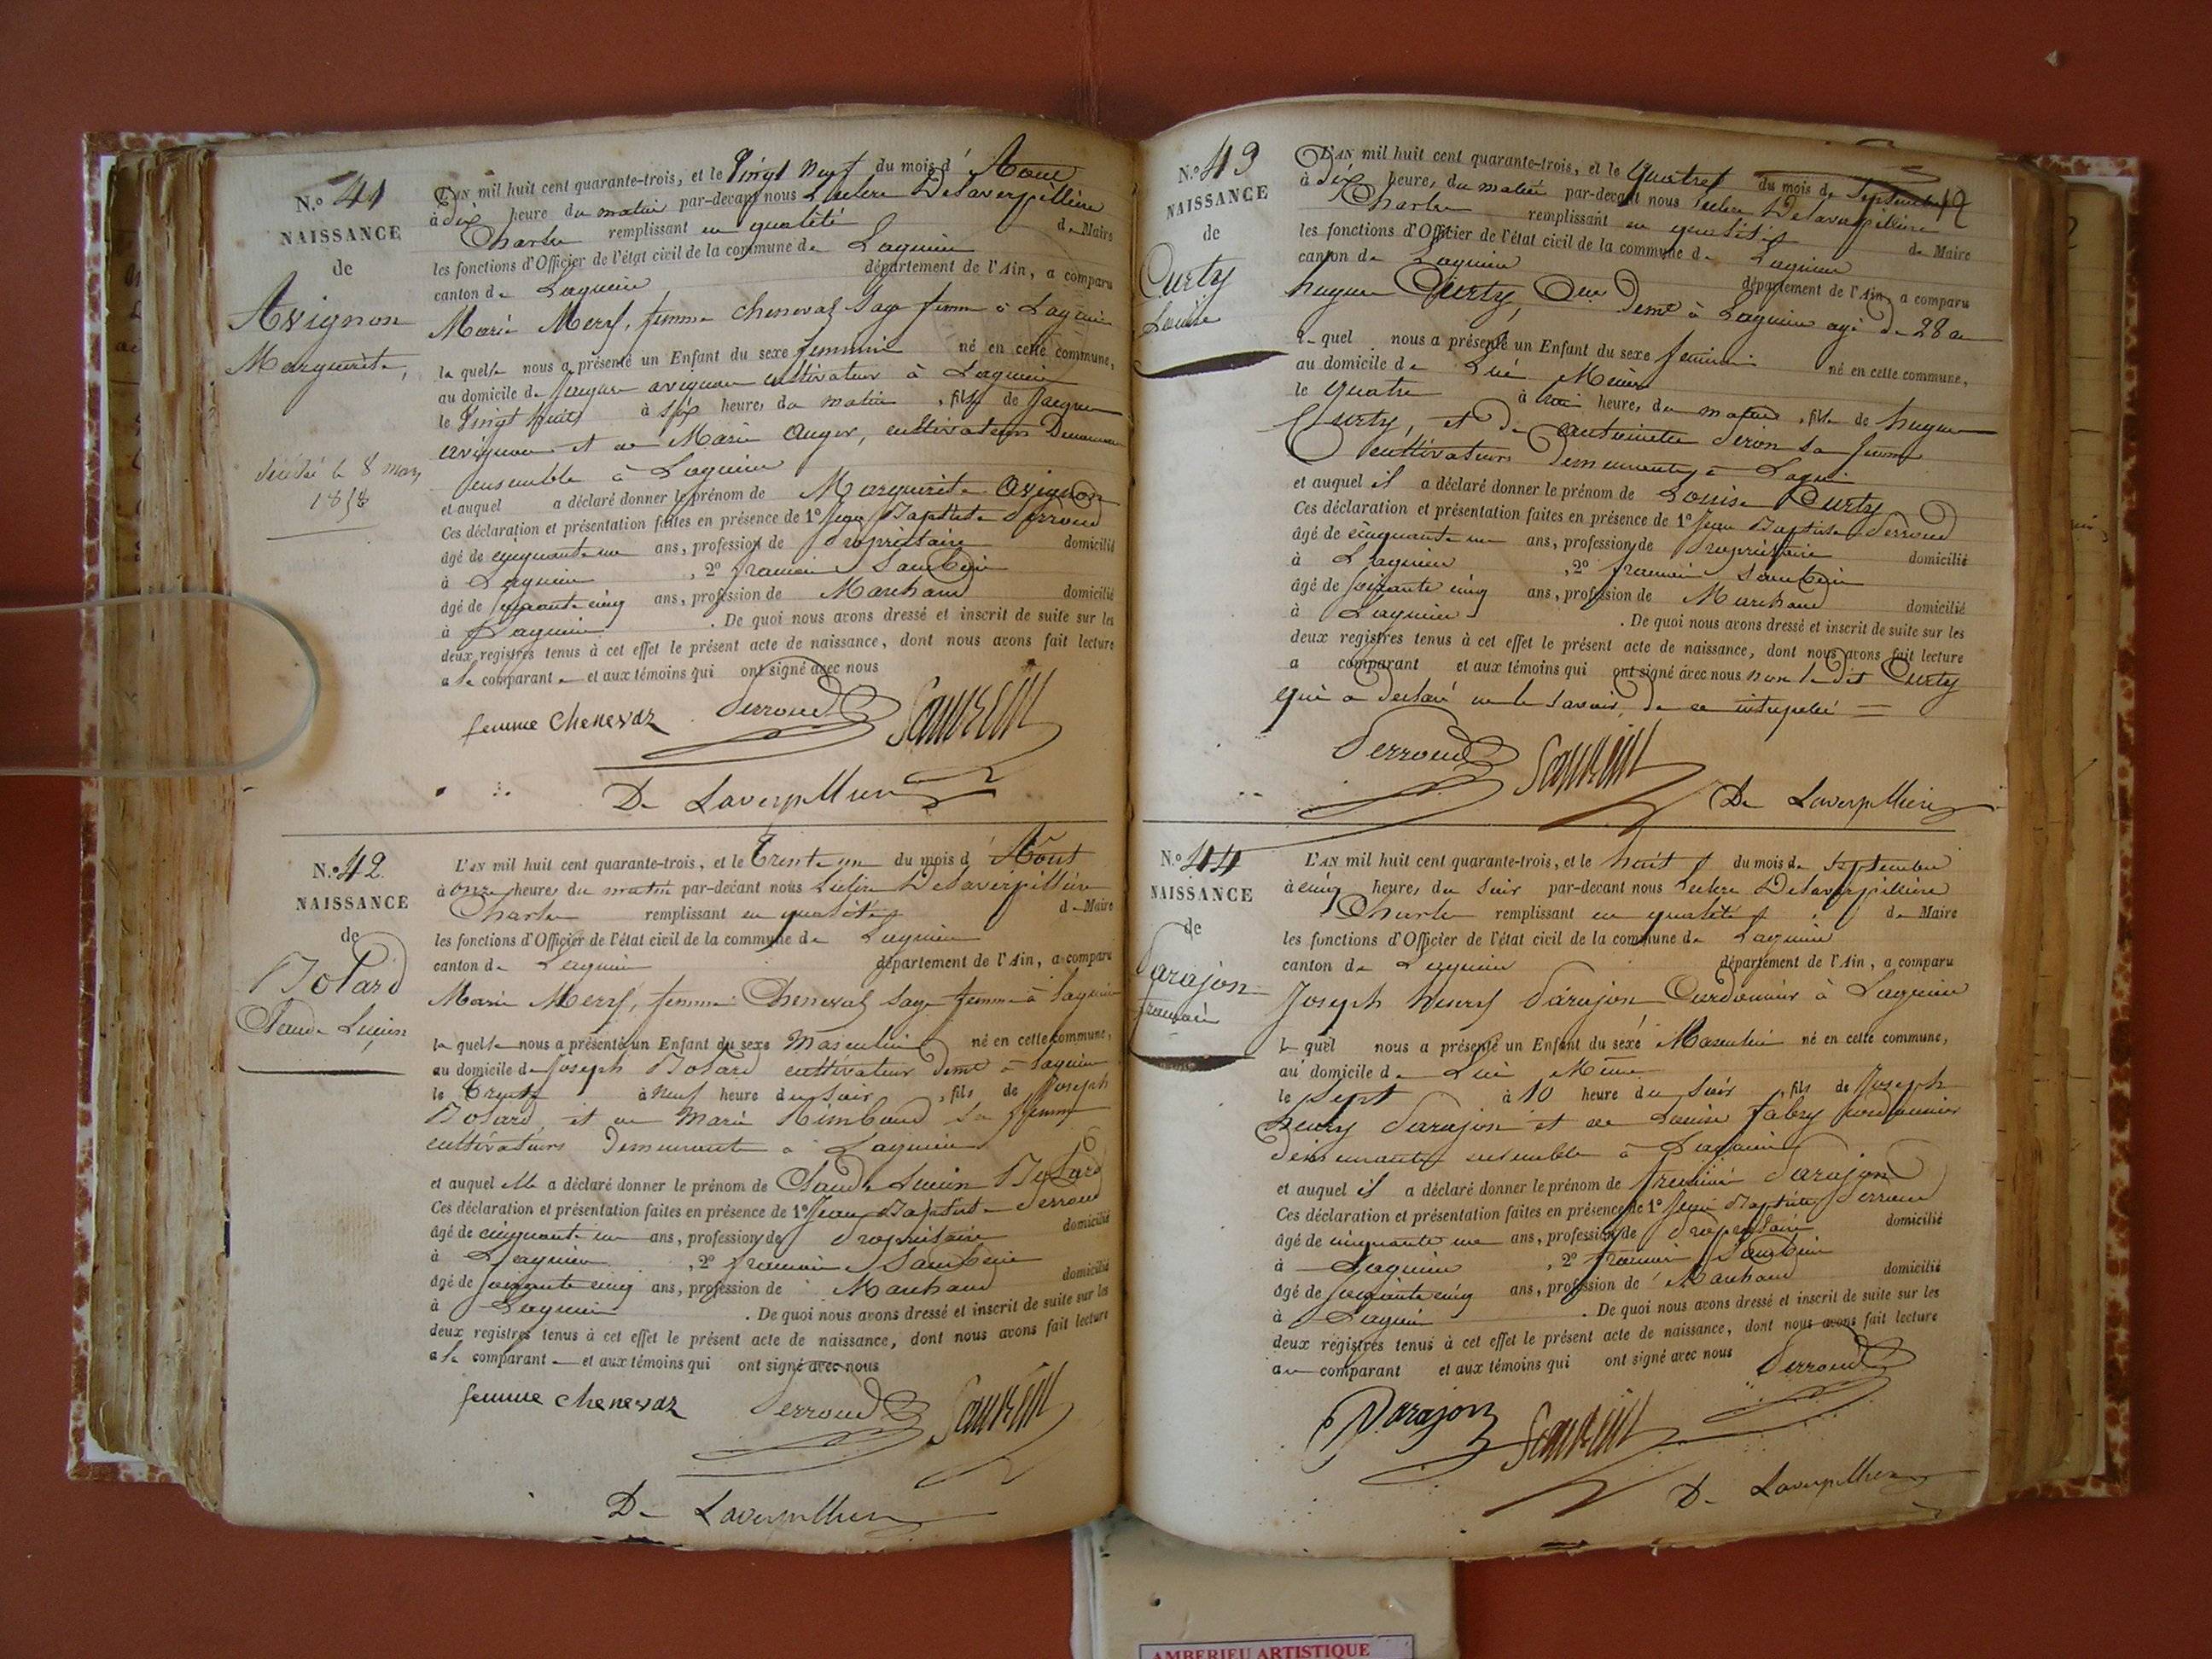 N.o 41
NAISSANCE
de
Avignon
Marguerite,
décédé le 8 mars
1858
L'AN mil huit cent quarante-trois, et le Vingt neuf du mois d' Aout
à dix heure du matin par-devant nous Leclerc Delaverpillière
Charles remplissant en qualité de Maire
les fonctions d'Officier de l'état civil de la commune de Lagnieu
canton de Lagnieu département de l'Ain, a comparu
Marie Merf, femme chenevaz Sage femme à Lagnieu
la quelle nous a présenté un Enfant du sexe feminin né en cette commune,
au domicile de Jacque avignon cultivateur à Lagnieu
le Vingt huit à six heure, du matin , fille de Jacque
avignon et de Marie Auger, cultivateurs Demeurant
ensemble à Lagnieu
et auquel a déclaré donner le prénom de Marguerite Avignon
Ces déclaration et présentation faites en présence de 1o Jean Baptiste Perroud
âgé de cinquante un ans, profession de Propriétaire domicilié
à Lagnieu , 2o francois Sambein
âgé de soixante cinq ans, profession de Marchand domicilié
à Lagnieu . De quoi nous avons dressé et inscrit de suite sur les
deux registres tenus à cet effet le présent acte de naissance, dont nous avons fait lecture
a la comparante et aux témoins qui ont signé avec nous
femme chenevaz Perroud
De Laverpilliere
N.o 42
NAISSANCE
de
Bolard
Claude Lucien
L'AN mil huit cent quarante-trois, et le Trente un du mois d' Août
à onze heure, du matin par-devant nous Leclerc Delaverpillière
Charles remplissant en qualité de Maire
les fonctions d'Officier de l'état civil de la commune de Lagnieu
canton de Lagnieu département de l'Ain, a comparu
Marie Merf, femme Chenevaz Sage femme à Lagnieu
la quelle nous a présenté un Enfant du sexe Masculin né en cette commune,
au domicile de Joseph Bolard cultivateur demt à Lagnieu
le Trente à neuf heure du soir , fils de Joseph
Bolard, et de Marie Rimbaud sa femme
cultivateurs Demeurants à Lagnieu
et auquel elle a déclaré donner le prénom de Claude Lucien Bolard
Ces déclaration et présentation faites en présence de 1o Jean Baptiste Perroud
âgé de cinquante un ans, profession de Propriétaire domicilié
à Lagnieu , 2o francois Sambein
âgé de soixante cinq ans, profession de Marchand domicilié
à Lagnieu . De quoi nous avons dressé et inscrit de suite sur les
deux registres tenus à cet effet le présent acte de naissance, dont nous avons fait lecture
a la comparante et aux témoins qui ont signé avec nous
femme chenevaz Perroud
De Laverpilliere
N.o 43
NAISSANCE
de
Curty
Louise
L'AN mil huit cent quarante-trois, et le Quatre du mois de Septembre
à dix heure, du matin par-devant nous Leclerc Delaverpillière
Charles remplissant en qualité de Maire
les fonctions d'Officier de l'état civil de la commune de Lagnieu
canton de Lagnieu département de l'Ain, a comparu
hugue Curty, demt à Lagnieu agé de 28 an
le quel nous a présenté un Enfant du sexe feminin né en cette commune,
au domicile de Lui Même
le quatre à heure, du matin , fille de hugue
Curty, et de antoinette sa femme
cultivateurs demeurants à Lagnieu
et auquel il a déclaré donner le prénom de Louise Curty
Ces déclaration et présentation faites en présence de 1o Jean Baptiste Perroud
âgé de cinquante un ans, profession de Propriétaire domicilié
à Lagnieu , 2o francois Sambein
âgé de soixante cinq ans, profession de Marchand domicilié
à Lagnieu . De quoi nous avons dressé et inscrit de suite sur les
deux registres tenus à cet effet le présent acte de naissance, dont nous avons fait lecture
a comparant et aux témoins qui ont signé avec nous non le dit Curty
qui a declaré ne le savoir, de ce interpelé
Perroud
De Laverpilliere
N.o 44
NAISSANCE
de
Parajon
francois
L'AN mil huit cent quarante-trois, et le huit du mois de Septembre
à cinq heure, du soir par-devant nous Leclerc Delaverpillière
Charles remplissant en qualité de Maire
les fonctions d'Officier de l'état civil de la commune de Lagnieu
canton de Lagnieu département de l'Ain, a comparu
Joseph henry Parajon Cordonnier à Lagnieu
le quel nous a présenté un Enfant du sexe Masculin né en cette commune,
au domicile de Lui Même
le sept à 10 heure du soir , fils de Joseph
henry Parajon et de Louise fabry cordonnier
demeurants ensemble à Lagnieu
et auquel il a déclaré donner le prénom de francois Parajon
Ces déclaration et présentation faites en présence de 1o Jean Baptiste Perroud
âgé de cinquante un ans, profession de Propriétaire domicilié
à Lagnieu , 2o francois Sambein
âgé de soixante cinq ans, profession de Marchand domicilié
à Lagnieu . De quoi nous avons dressé et inscrit de suite sur les
deux registres tenus à cet effet le présent acte de naissance, dont nous avons fait lecture
au comparant et aux témoins qui ont signé avec nous Perroud
Parajon
De Laverpilliere
AMBERIEU ARTISTIQUE